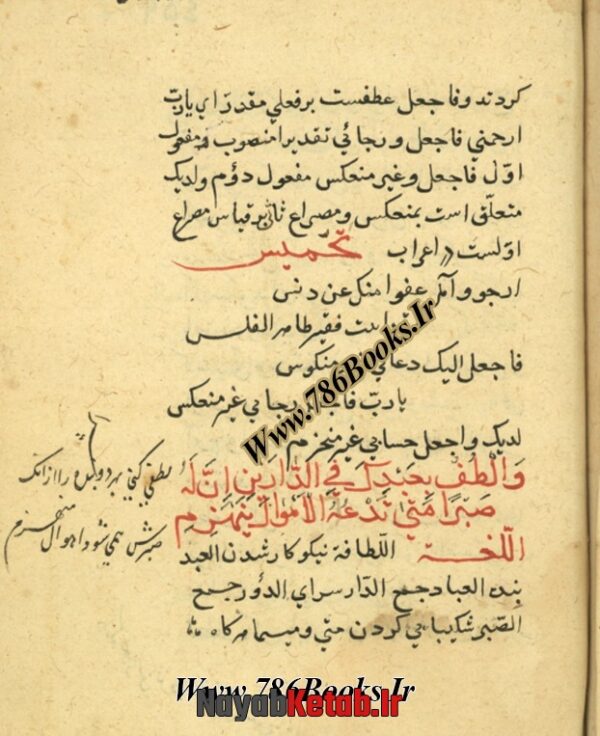 کردند و فاجعل عطفست بر فعلی مقدر ای یارب
ارحمنی فاجعل و رجائی تقدیرا منصوب و مفعول
اول فاجعل و غیر منعکس مفعول دوم ولدیک
متعلق است بمنعکس و مصراع ثانی بر قیاس مصراع
اولست در اعراب تخمیس
ارجو و آمل عفوا منک عن دنس
فقیر ظاهر الفلس
فاجعل الیک دعائی منکوس
یارب فاجعل رجایی غیر منعکس
لدیک واجعل حسابی غیر منخرم
وَالْطُفْ بِعَبْدِكَ فِي الدَّارَيْنِ اِنَّ لَهُ
صَبْرًا مَتٰي تَدْعُهُ الْاَهْوَالُ يَنْهَزِمِ
اللّغة اللطافة نیکوکار شدن العبد
بنده العباد جمع الدار سرای الدور جمع
الصبر شکیبایی کردن متی و مهما هرگاه
لطفی کن بهر دو بنده را زانک
صبرش همی شود اهوال منهزم
Www.786Books.Ir
Www.786Books.Ir
NayabKetab.Ir